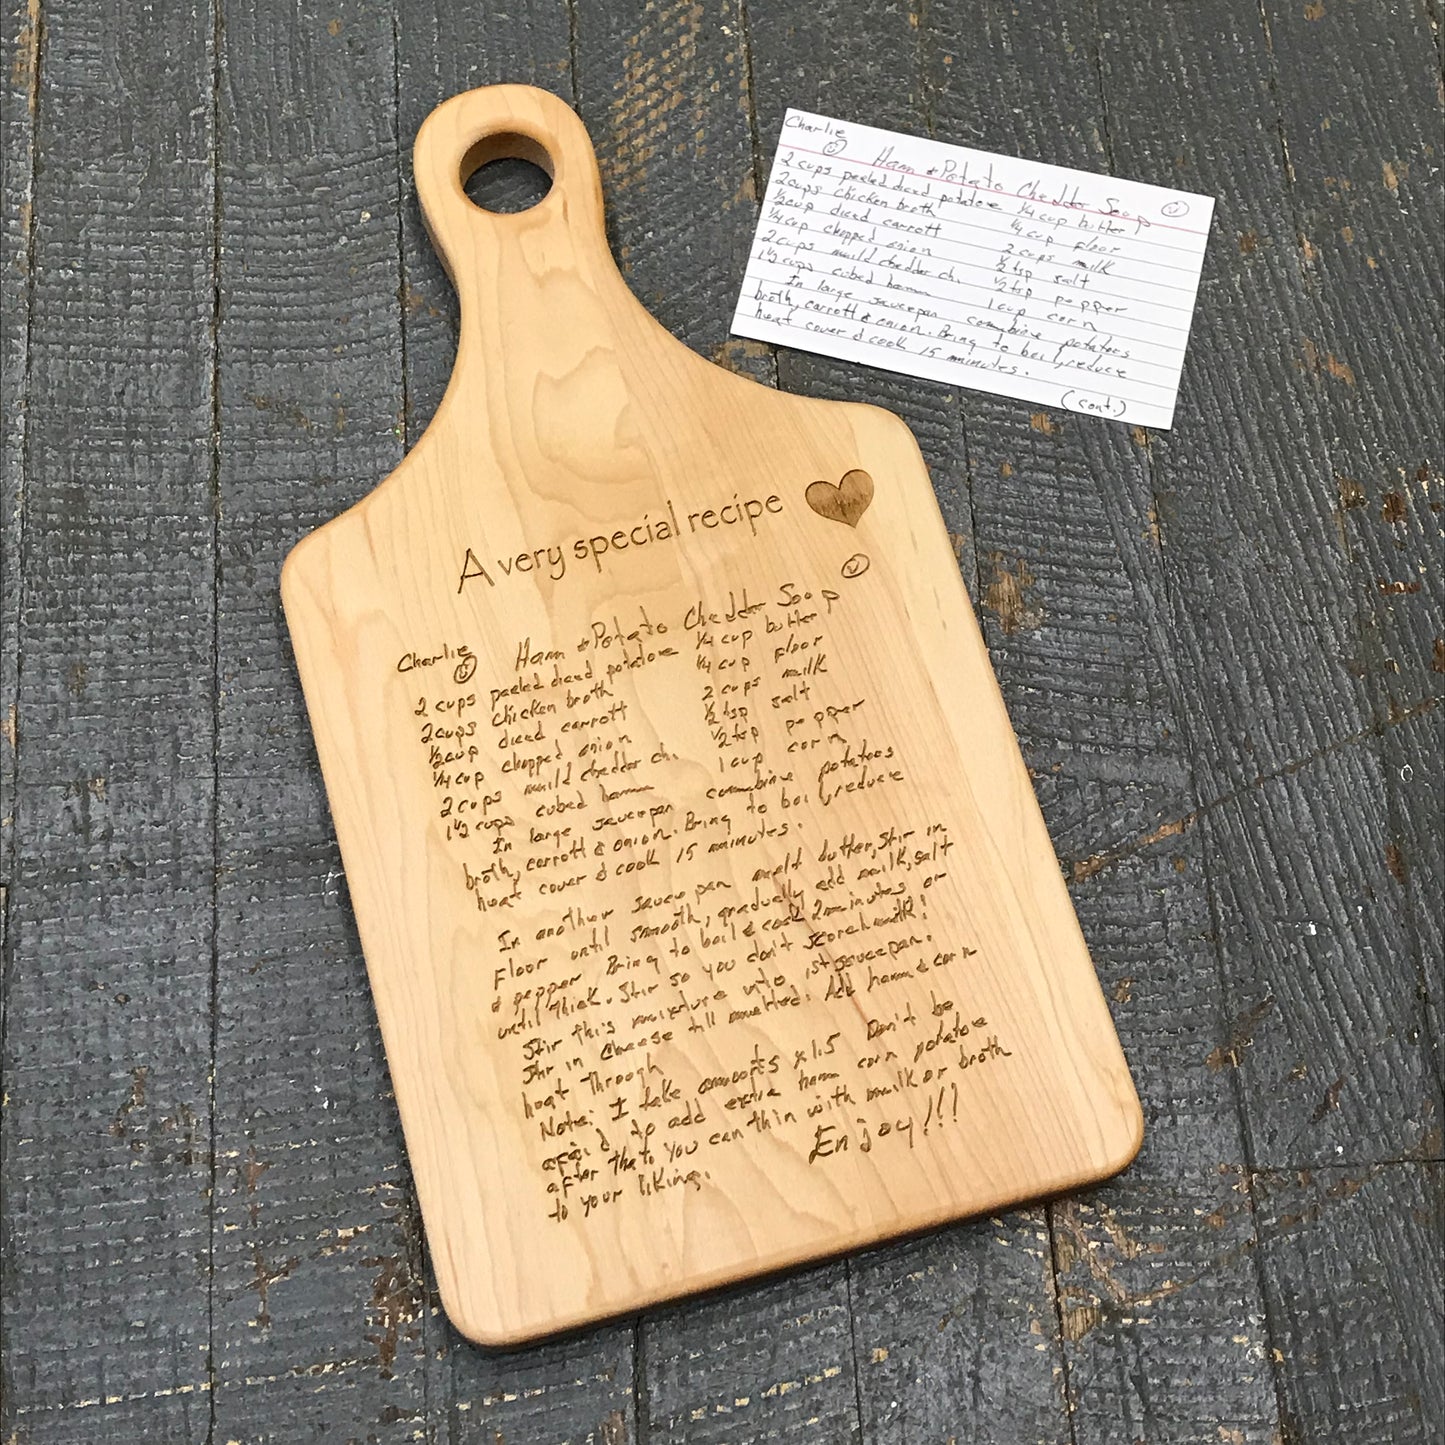 Charlie
Ham & Potato Cheddar Soup
2 cups peeled diced potatoe 1/4 cup butter
2 cups chicken broth 1/4 cup Floor
1/2 cup diced carrott 2 cups milk
1/4 cup chopped onion 1/2 tsp salt
2 cups muild cheddar ch. 1/2 tsp pepper
1 1/2 cups cubed hamm 1 cup corn
In large saucepan combine potatoes
broth, carrott & onion. Bring to boil, reduce
heat cover & cook 15 minutes.
(cont.)
A very special recipe
Charlie
Ham & Potato Cheddar Soup
2 cups peeled diced potatoe 1/4 cup butter
2 cups chicken broth 1/4 cup Floor
1/2 cup diced carrott 2 cups milk
1/4 cup chopped onion 1/2 tsp salt
2 cups muild cheddar ch. 1/2 tsp pepper
1 1/2 cups cubed hamm 1 cup corn
In large saucepan combine potatoes
broth, carrott & onion. Bring to boil, reduce
heat cover & cook 15 minutes.
In another sauce pan melt butter, Stir in
Floor until smooth, gradually add milk, salt
& pepper Bring to boil & cook 2 minutes or
until thick. Stir so you don't scorch milk!
Stir this mixture into 1st saucepan.
Stir in Cheese till melted. Add hamm & corn
heat through
Note: I take amoots x1.5 Don't be
afaid to add extra hamm corn potatoe
after that. You can thin with milk or broth
to your liking.
Enjoy!!!